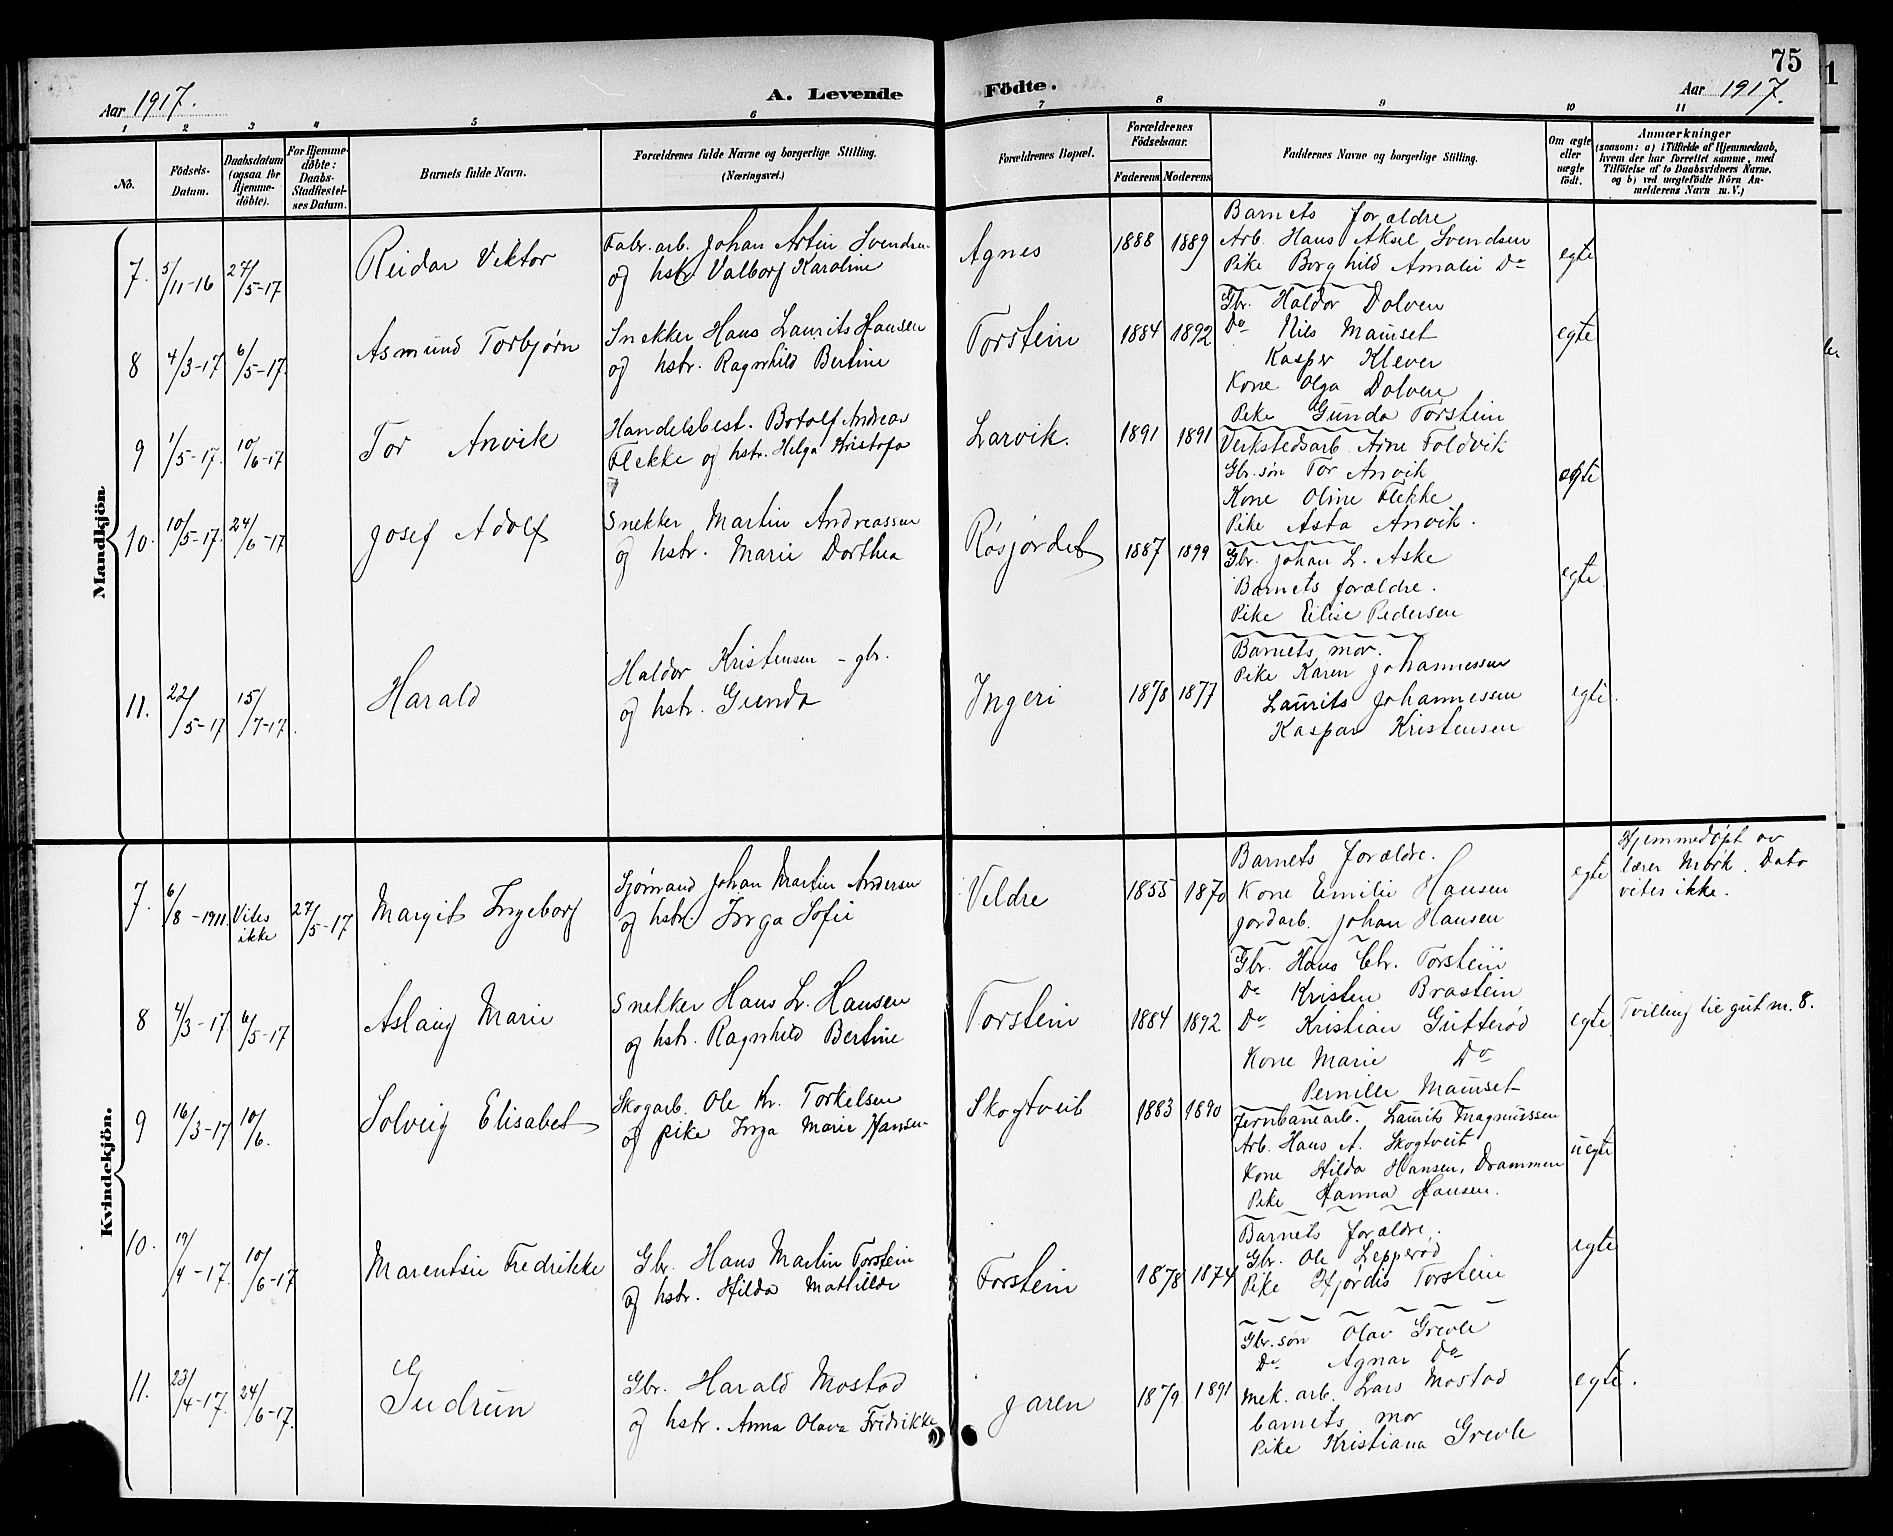 75
Aar 1917.
A. Levende Födte.
Aar 1917.
1 2 3 4 5 6 7 8 9 10 11
No.
Födsels-Datum.
Daabsdatum (ogsaa for Hjemme-döbte).
For Hjemme-döbte: Daabs-Stadfæstel-ses Datum.
Barnets fulde Navn.
Forældrenes fulde Navne og borgerlige Stilling. (Næringsvei.)
Forældrenes Bopæl.
Forældrenes Födselsaar.
Faderens. Moderens.
Faddernes Navne og borgerlige Stilling.
Om ægte eller uægte födt.
Anmærkninger
(saasom: a) i Tilfælde af Hjemmedaab,
hvem der har forrettet samme, med
Tilföielse af to Daabsvidners Navne.
og b) ved uægtefödte Börn An-
melderens Navn m. V.)
Mandkjön
7. 5/11-16 27/5-17 Reidar Viktor
Fabr. arb. Johan Artin Svendsen
og hstr. Valborg Karoline
Agnes 1888 1889
Barnets forældre
Arb. Hans Aksel Svendsen
Pike Borghild Amalie Do
egte
8 4/3-17 6/5-17. Asmund Torbjørn
Snekker Hans Laurits Hansen
og hstr. Ragnhild Bertine
Torstein 1884 1892
Gbr. Haldor Dolven
Do Nils Mauset
Kasper Klever
Kone Olga Dolven
Pike Gunda Torstein
egte
9 1/5-17. 10/6-17 Tor Anvik
Handelsbest. Botolf Andreas
Flekke og hstr. Helga Kristofa
Larvik. 1891 1891
Verkstedsarb. Arne Foldvik
Gbr. søn Tor Anvik
Kone Oline Flekke
Pike Asta Anvik.
egte
10. 10/5-17. 24/6-17 Josef Adolf
Snekker Martin Andreassen
og hstr. Marie Dorthea
Røsjordet 1887 1899
Gbr. Johan L. Aske
Barnets forældre.
Pike Elise Pedersen
egte
11. 22/5-17 15/7-17. Harald
Haldor Kristensen - gbr.
og hstr. Gunda
Ingeri 1878 1877
Barnets mor.
Pike Karen Johannessen
Laurits Johannessen
Kaspar Kristensen
egte.
Kvindekjön.
7. 6/8-1911. Vites ikke 27/5-17 Margit Ingeborg
Sjømand Johan Martin Andersen
og hstr. Inga Sofie
Veldre 1855 1870
Barnets forældre.
Kone Emilie Hansen
Jordarb. Johan Hansen
egte
Hjemmedøpt av
lærer Mørk. Dato
vites ikke.
8 4/3-17 6/5-17 Aslaug Marie
Snekker Hans L. Hansen
og hstr. Ragnhild Bertine
Torstein 1884 1892
Gbr. Hans Chr. Torstein
Do Kristen Brastein
Do Kristian Gutterød
Kone Marie Do
Pernille Mauset
egte.
Tvilling til gut nr. 8.
9 16/3-17 10/6. Solveig Elisabet
Skogarb. Ole Kr. Torkelsen
og pike Inga Marie Hansen
Skogtveit 1883 1890
Jernbanearb. Laurits Magnussen
Arb. Hans A. Skogtveit
Kone Hilda Hansen, Drammen
Pike Hanna Hansen.
uegte
10. 19/4-17. 10/6-17 Marentsie Fredrikke
Gbr. Hans Martin Torstein
og hstr. Hilda Mathilde
Torstein 1878 1874
Barnets forældre.
Gbr. Ole Lepperød
Pike Hjørdis Torstein
egte
11. 23/4-17. 24/6-17. Gudrun
Gbr. Harald Mostad
og hstr. Anna Olava Fridrikke
Jaren 1879. 1891
Gbr. søn Olav Grevle
Do Agnar Do
Mek. arb. Lars Mostad
barnets mor
Pike Kristiana Grevle
egte.